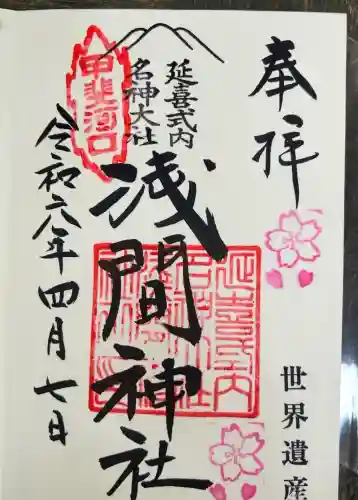 奉拝
世界遺産
延喜式内
名神大社
甲斐河口
浅間神社
令和六年四月七日